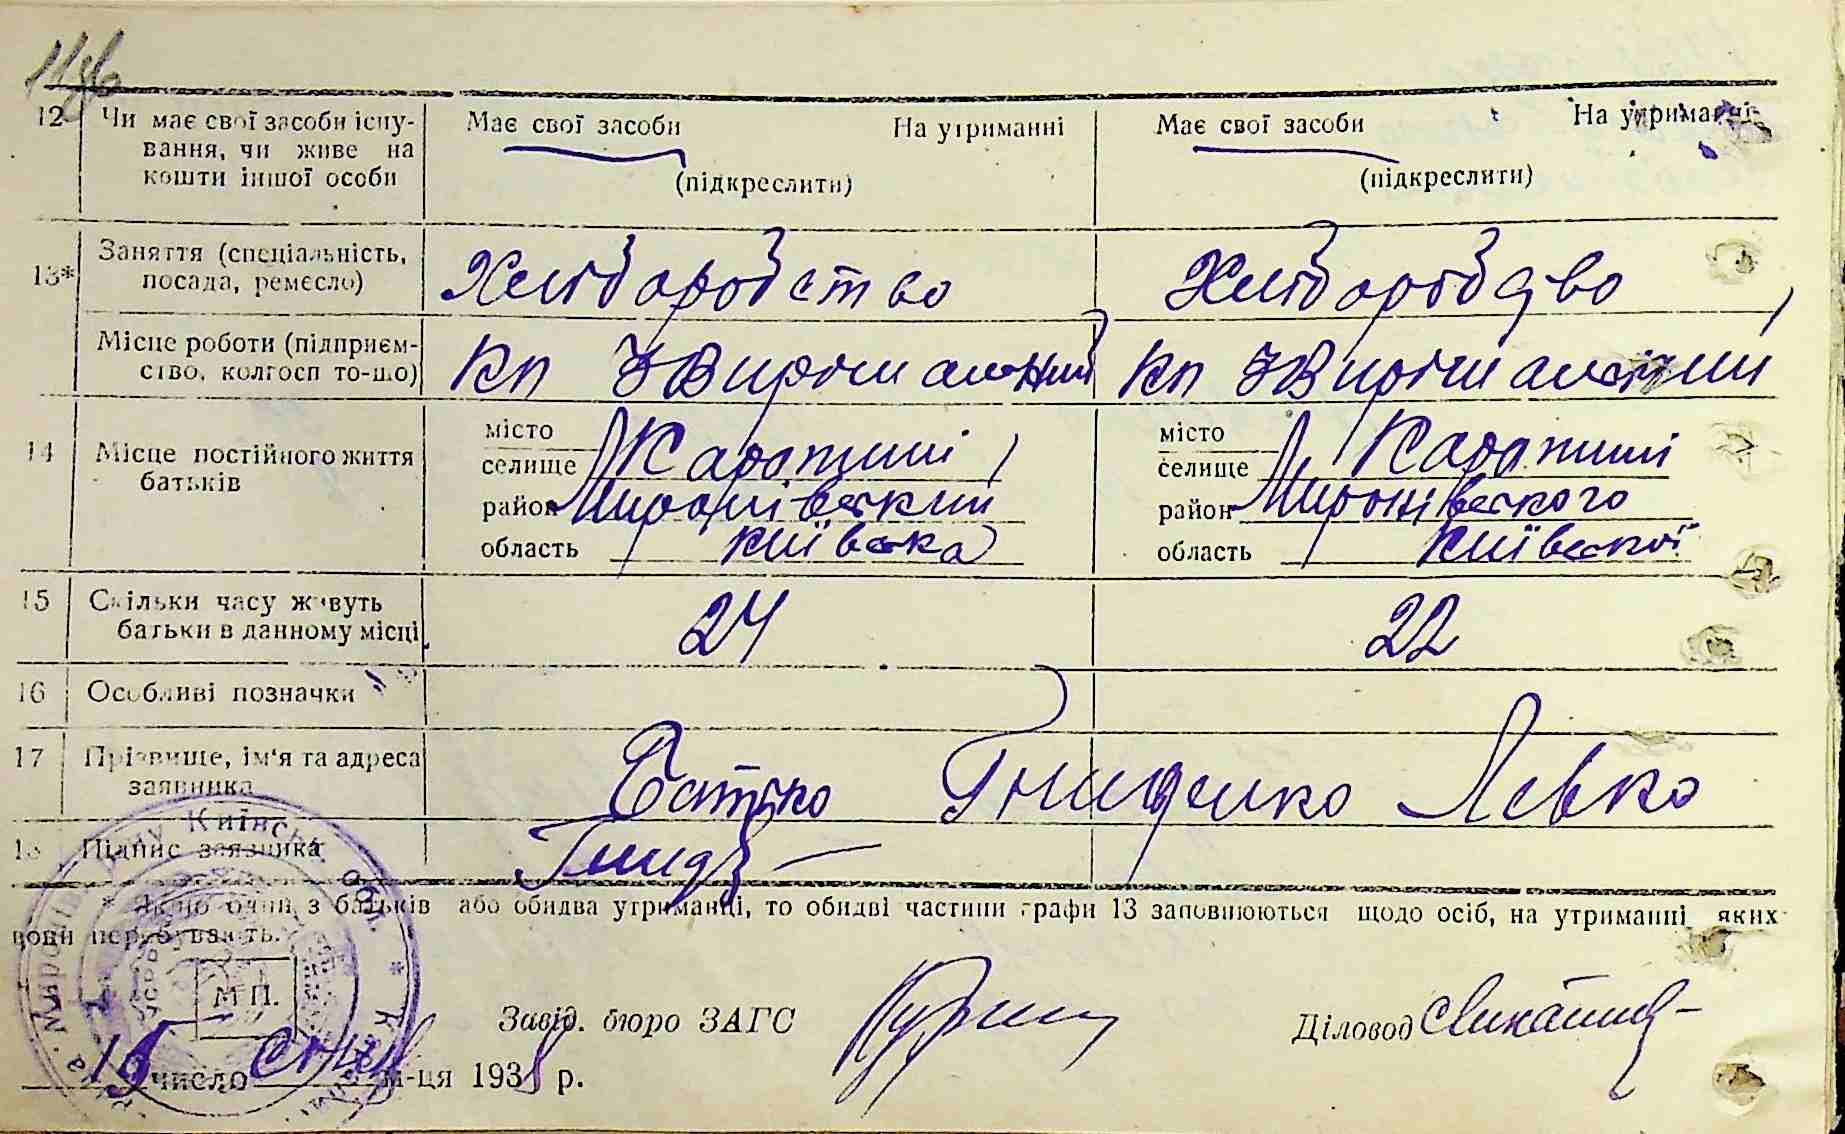 12 Чи має свої засоби існу- Має свої засоби На утриманні Має свої засоби На утриманні
вання, чи живе на
кошти іншої особи (підкреслити) (підкреслити)
13* Заняття (спеціальність,
посада, ремесло) Хліборобство Хліборобство
Місце роботи (підприєм-
ство, колгосп то-що) Кп Кп
14 Місце постійного життя
батьків
місто місто
селище Карапиші селище Карапиші
район Миронівский район Миронівского
область Київска область Київскої
15 Скільки часу живуть
батьки в данному місці 24 22
16 Особливі позначки
17 Прізвище, ім'я та адреса
заявника Батько Гниденко Левко
18 Підпис заявника Гнид
* Якщо один з батьків або обидва утриманці, то обидві частини графи 13 заповнюються щодо осіб, на утриманні яких
вони перебувають.
М П.
Завід. бюро ЗАГС Діловод
число м-ця 193 р.